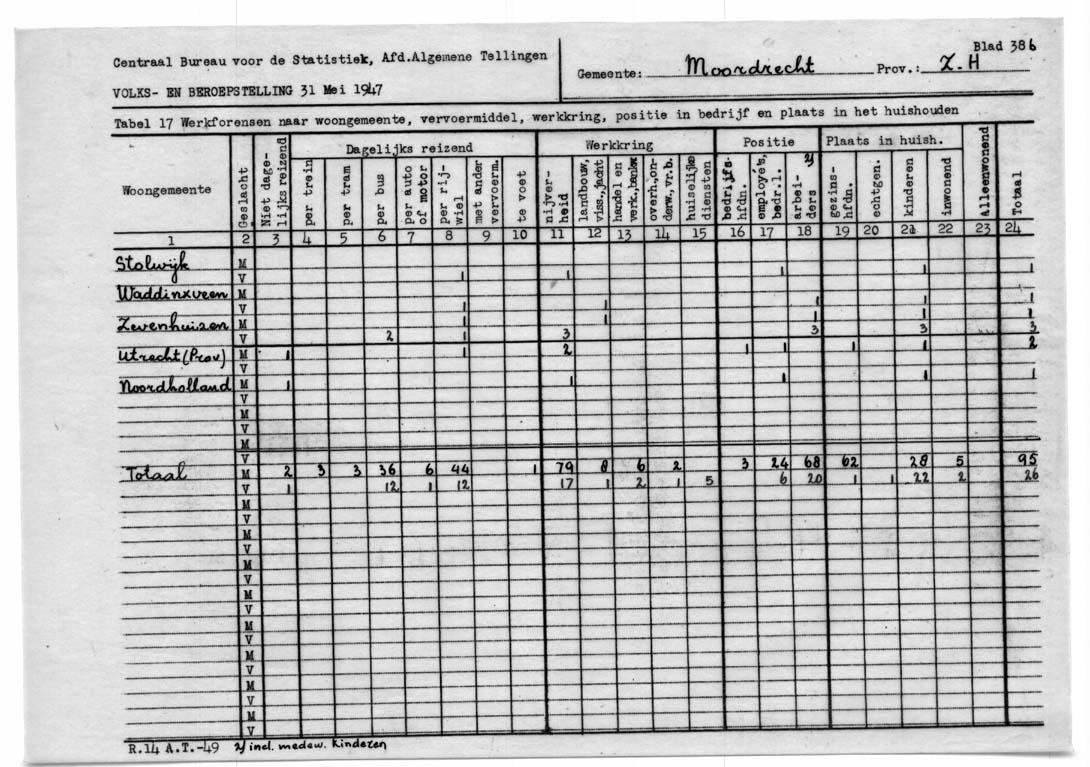 Centraal Bureau voor de Statistiek, Afd.Algemene Tellingen
VOLKS- EN BEROEPSTELLING 31 Mei 1947
Blad 386
Gemeente: Moordrecht Prov.: Z.H
Tabel 17 Werkforensen naar woongemeente, vervoermiddel, werkkring, positie in bedrijf en plaats in het huishouden
Woongemeente | Geslacht | Niet dagelijks reizend | Dagelijks reizend | Werkkring | Positie | Plaats in huish. | Alleenwonend | Totaal
per trein | per tram | per bus | per auto of motor | per rij-wiel | met ander vervoerm. | te voet | nijver-heid | landbouw, viss.,jacht | handel en verk.,bankw | overh.,on-derw.,vr.b. | huiselijke diensten | bedrijfs-hfdn. | employé's, bedr.l. | arbei-ders 2) | gezins-hfdn. | echtgen. | kinderen | inwonend
1 2 3 4 5 6 7 8 9 10 11 12 13 14 15 16 17 18 19 20 21 22 23 24
Stolwijk M
V 1 1 1 1 1
Waddinxveen M
V 1 1 1 1 1
Zevenhuizen M 1 1 1 1 1
V 2 1 3 3 3 3
Utrecht (Prov) M 1 1 2 1 1 1 1 2
V
Noordholland M 1 1 1 1 1
V
M
V
M
V
M
V
Totaal M 2 3 3 36 6 44 1 79 8 6 2 3 24 68 62 28 5 95
V 1 12 1 12 17 1 2 1 5 6 20 1 1 22 2 26
M
V
M
V
M
V
M
V
M
V
M
V
M
V
M
V
R.14 A.T.-49 2) incl. medew. kinderen